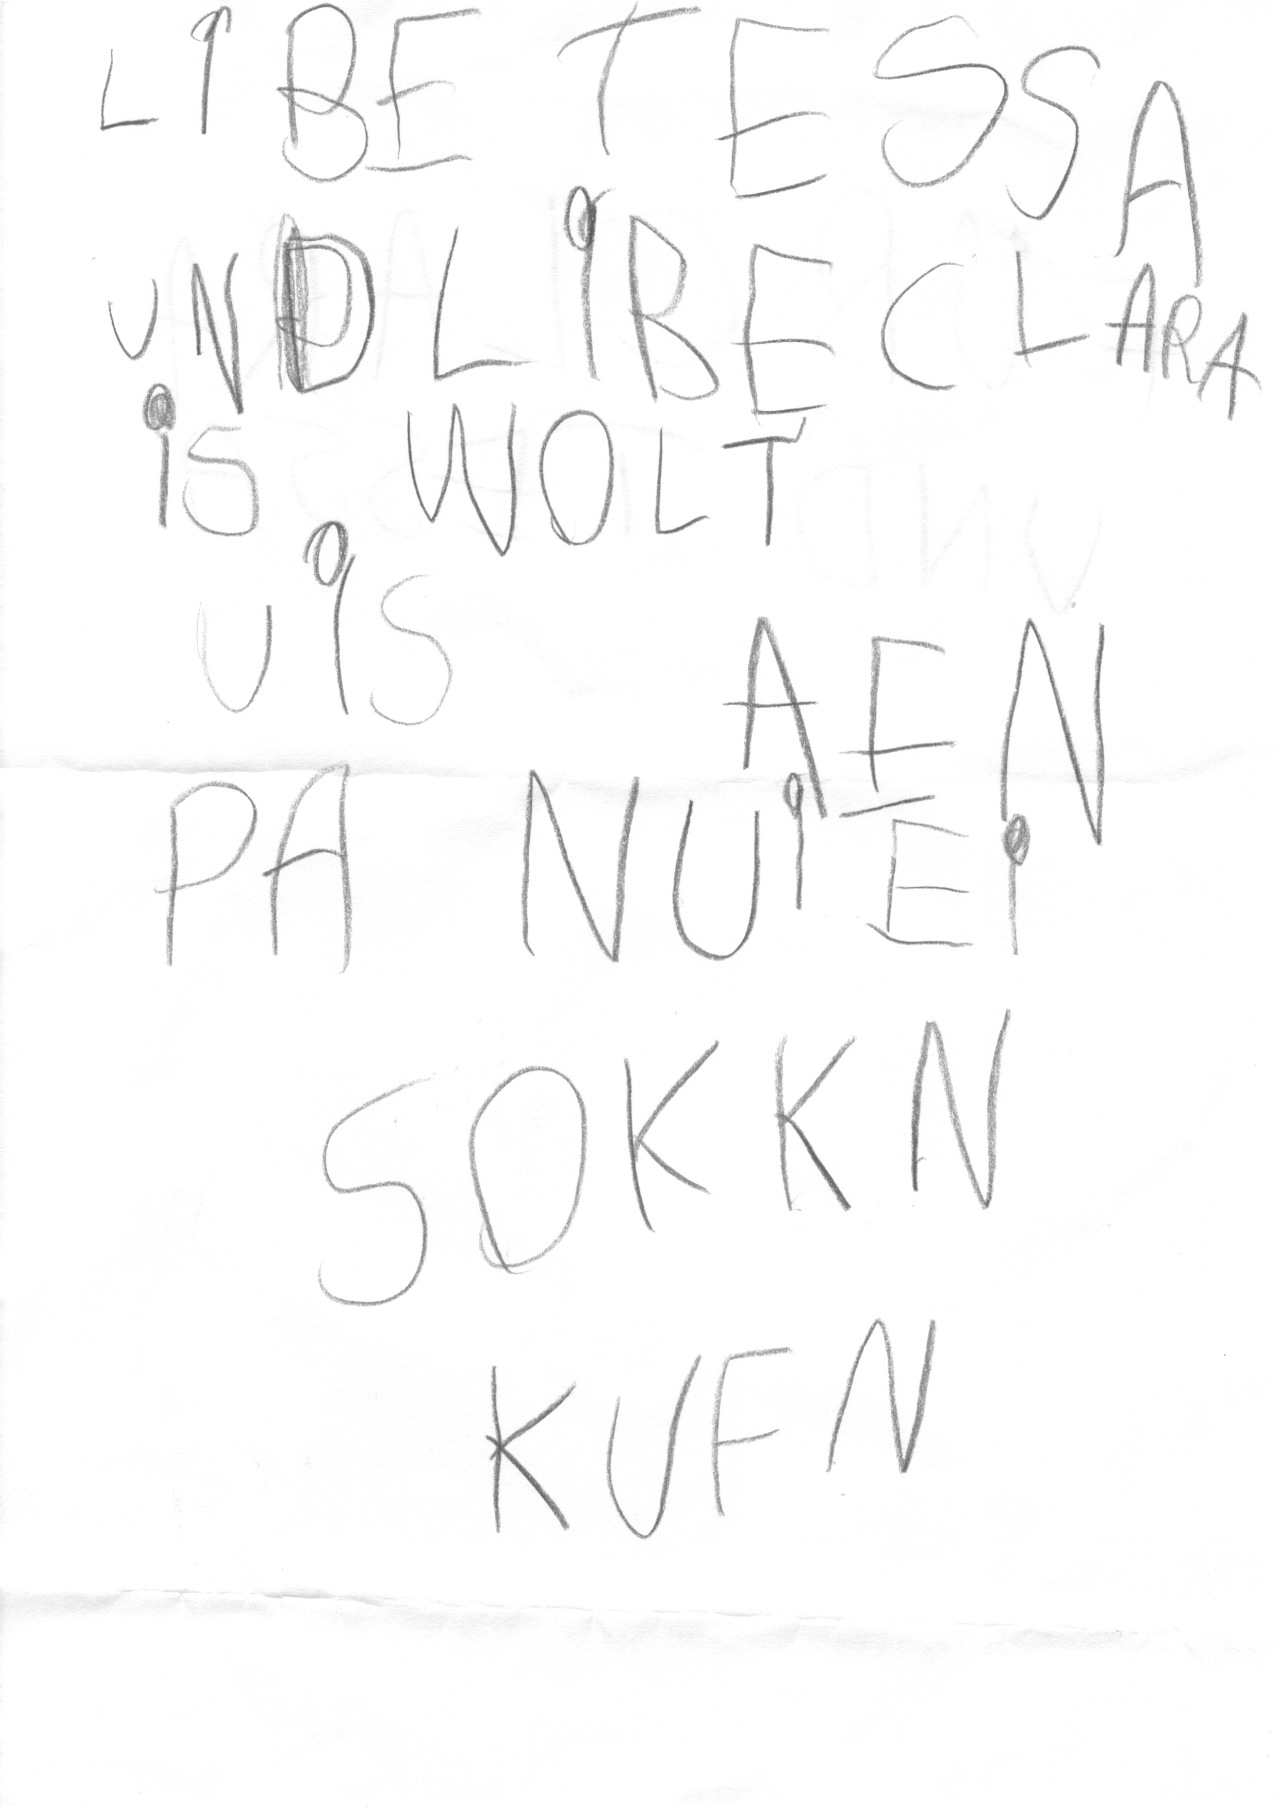 LiBE TESSA
UND LiBE CLARA
iS WOLT
UiS AEN
PA NUiEi
SOKKN
KUFN